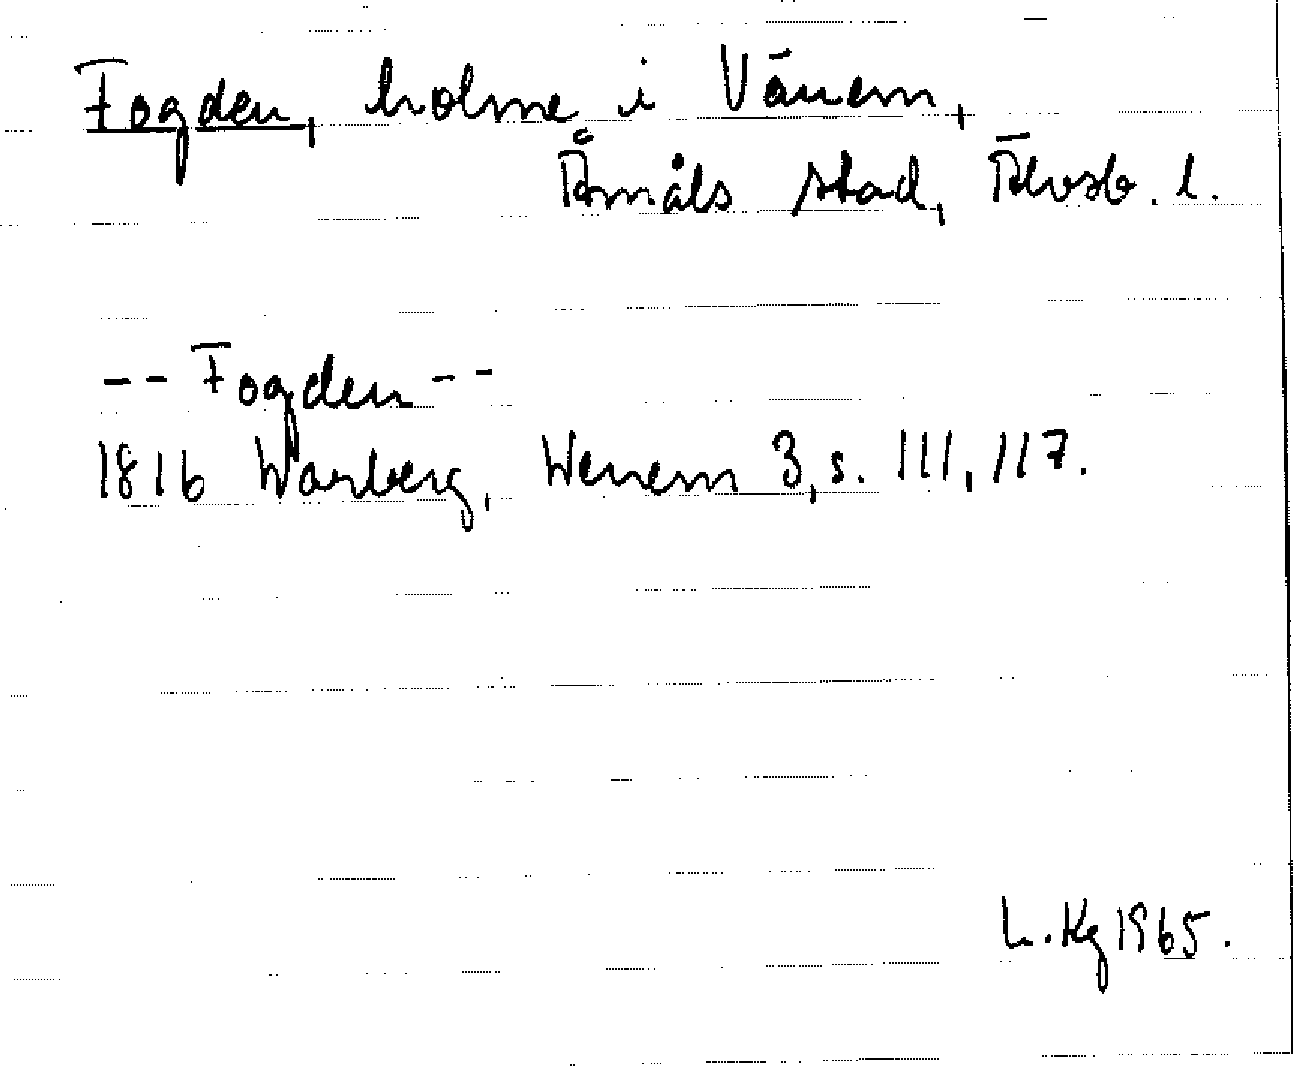 Fogden, holme i Vänern,
Åmåls stad, Älvsb. l.
-- Fogden --
1816 Warberg, Wenern 3, s. 111, 117.
L. Kg 1965.